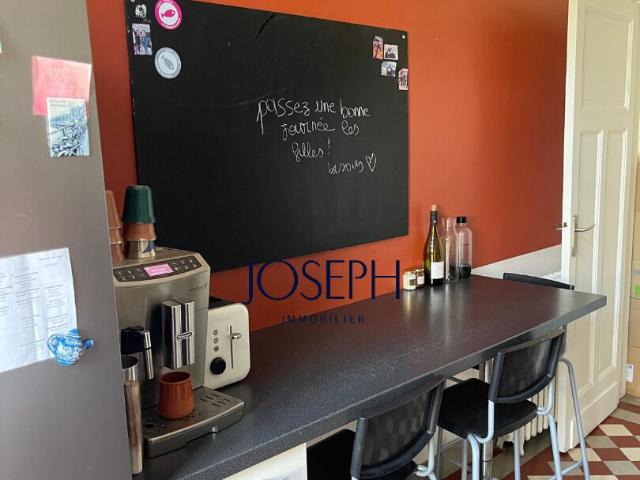 passez une bonne
journée les
filles !
bisous ♡
JOSEPH
IMMOBILIER